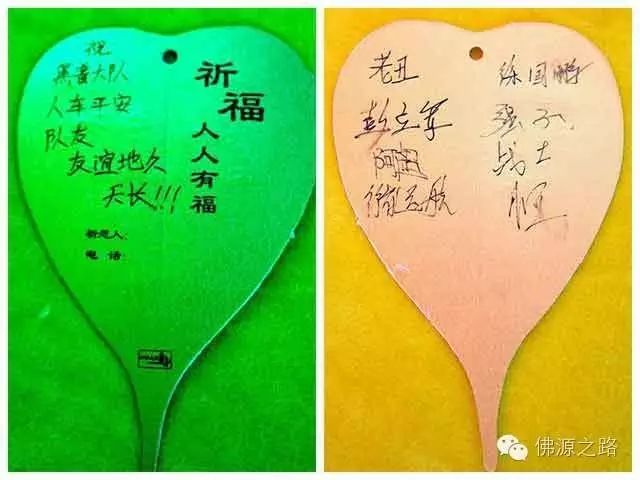 祝
黑音大队
人车平安
队友
友谊地久
天长!!!
祈福
人人有福
祈愿人:
电话:
老丑
彭立军
阿超
徐国鹏
强子
战士
佛源之路